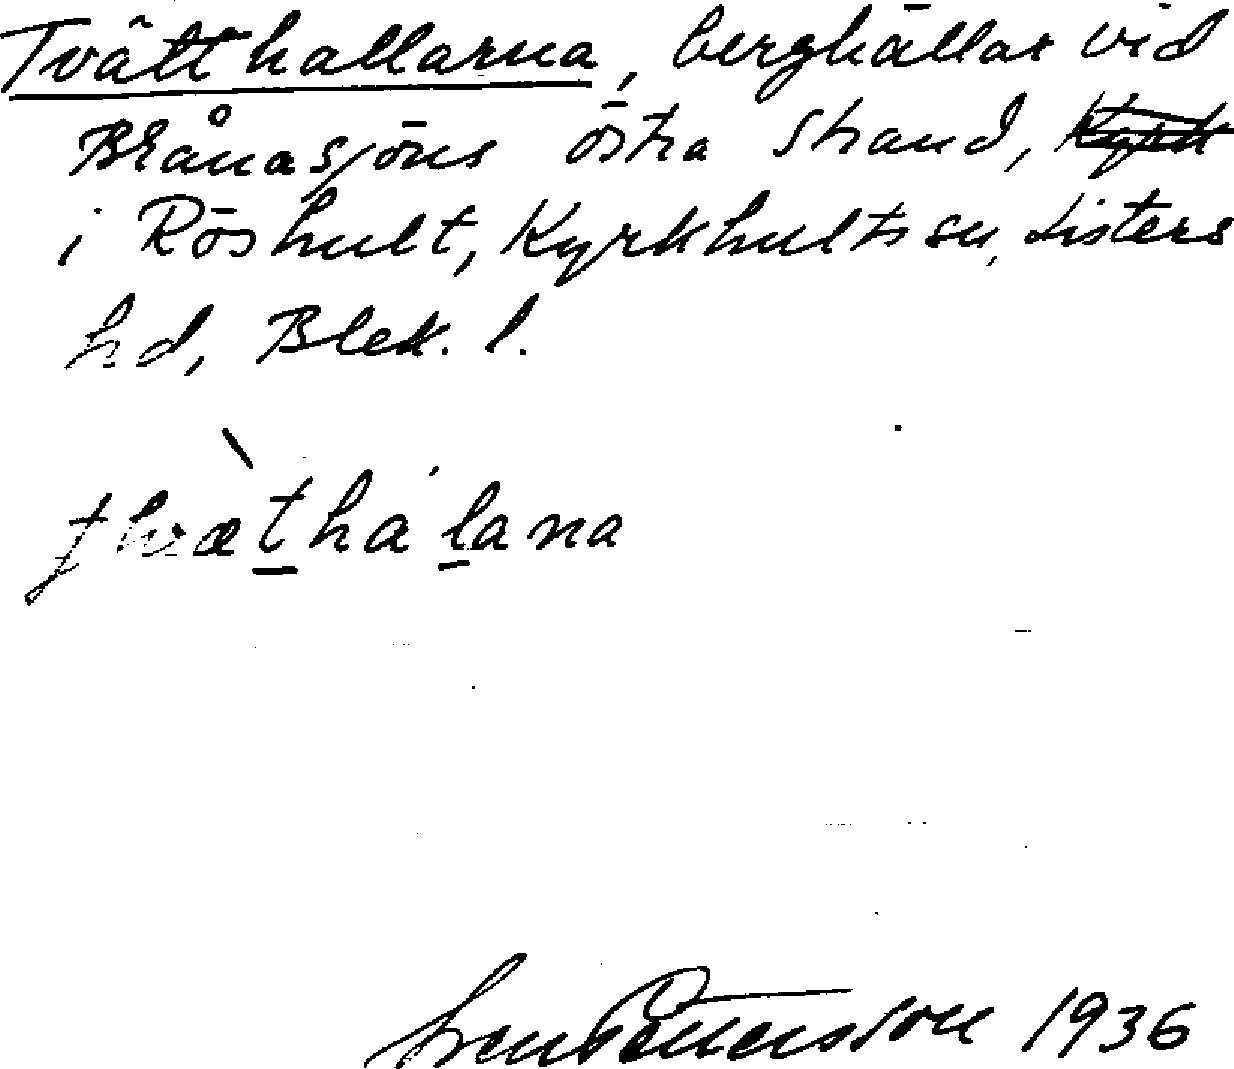 Tvätthallarna, berghällar vid
Blånasjöns östra strand,
i Röshult, Kyrkhults sn, Listers
hd, Blek. l.
Sven Pettersson 1936